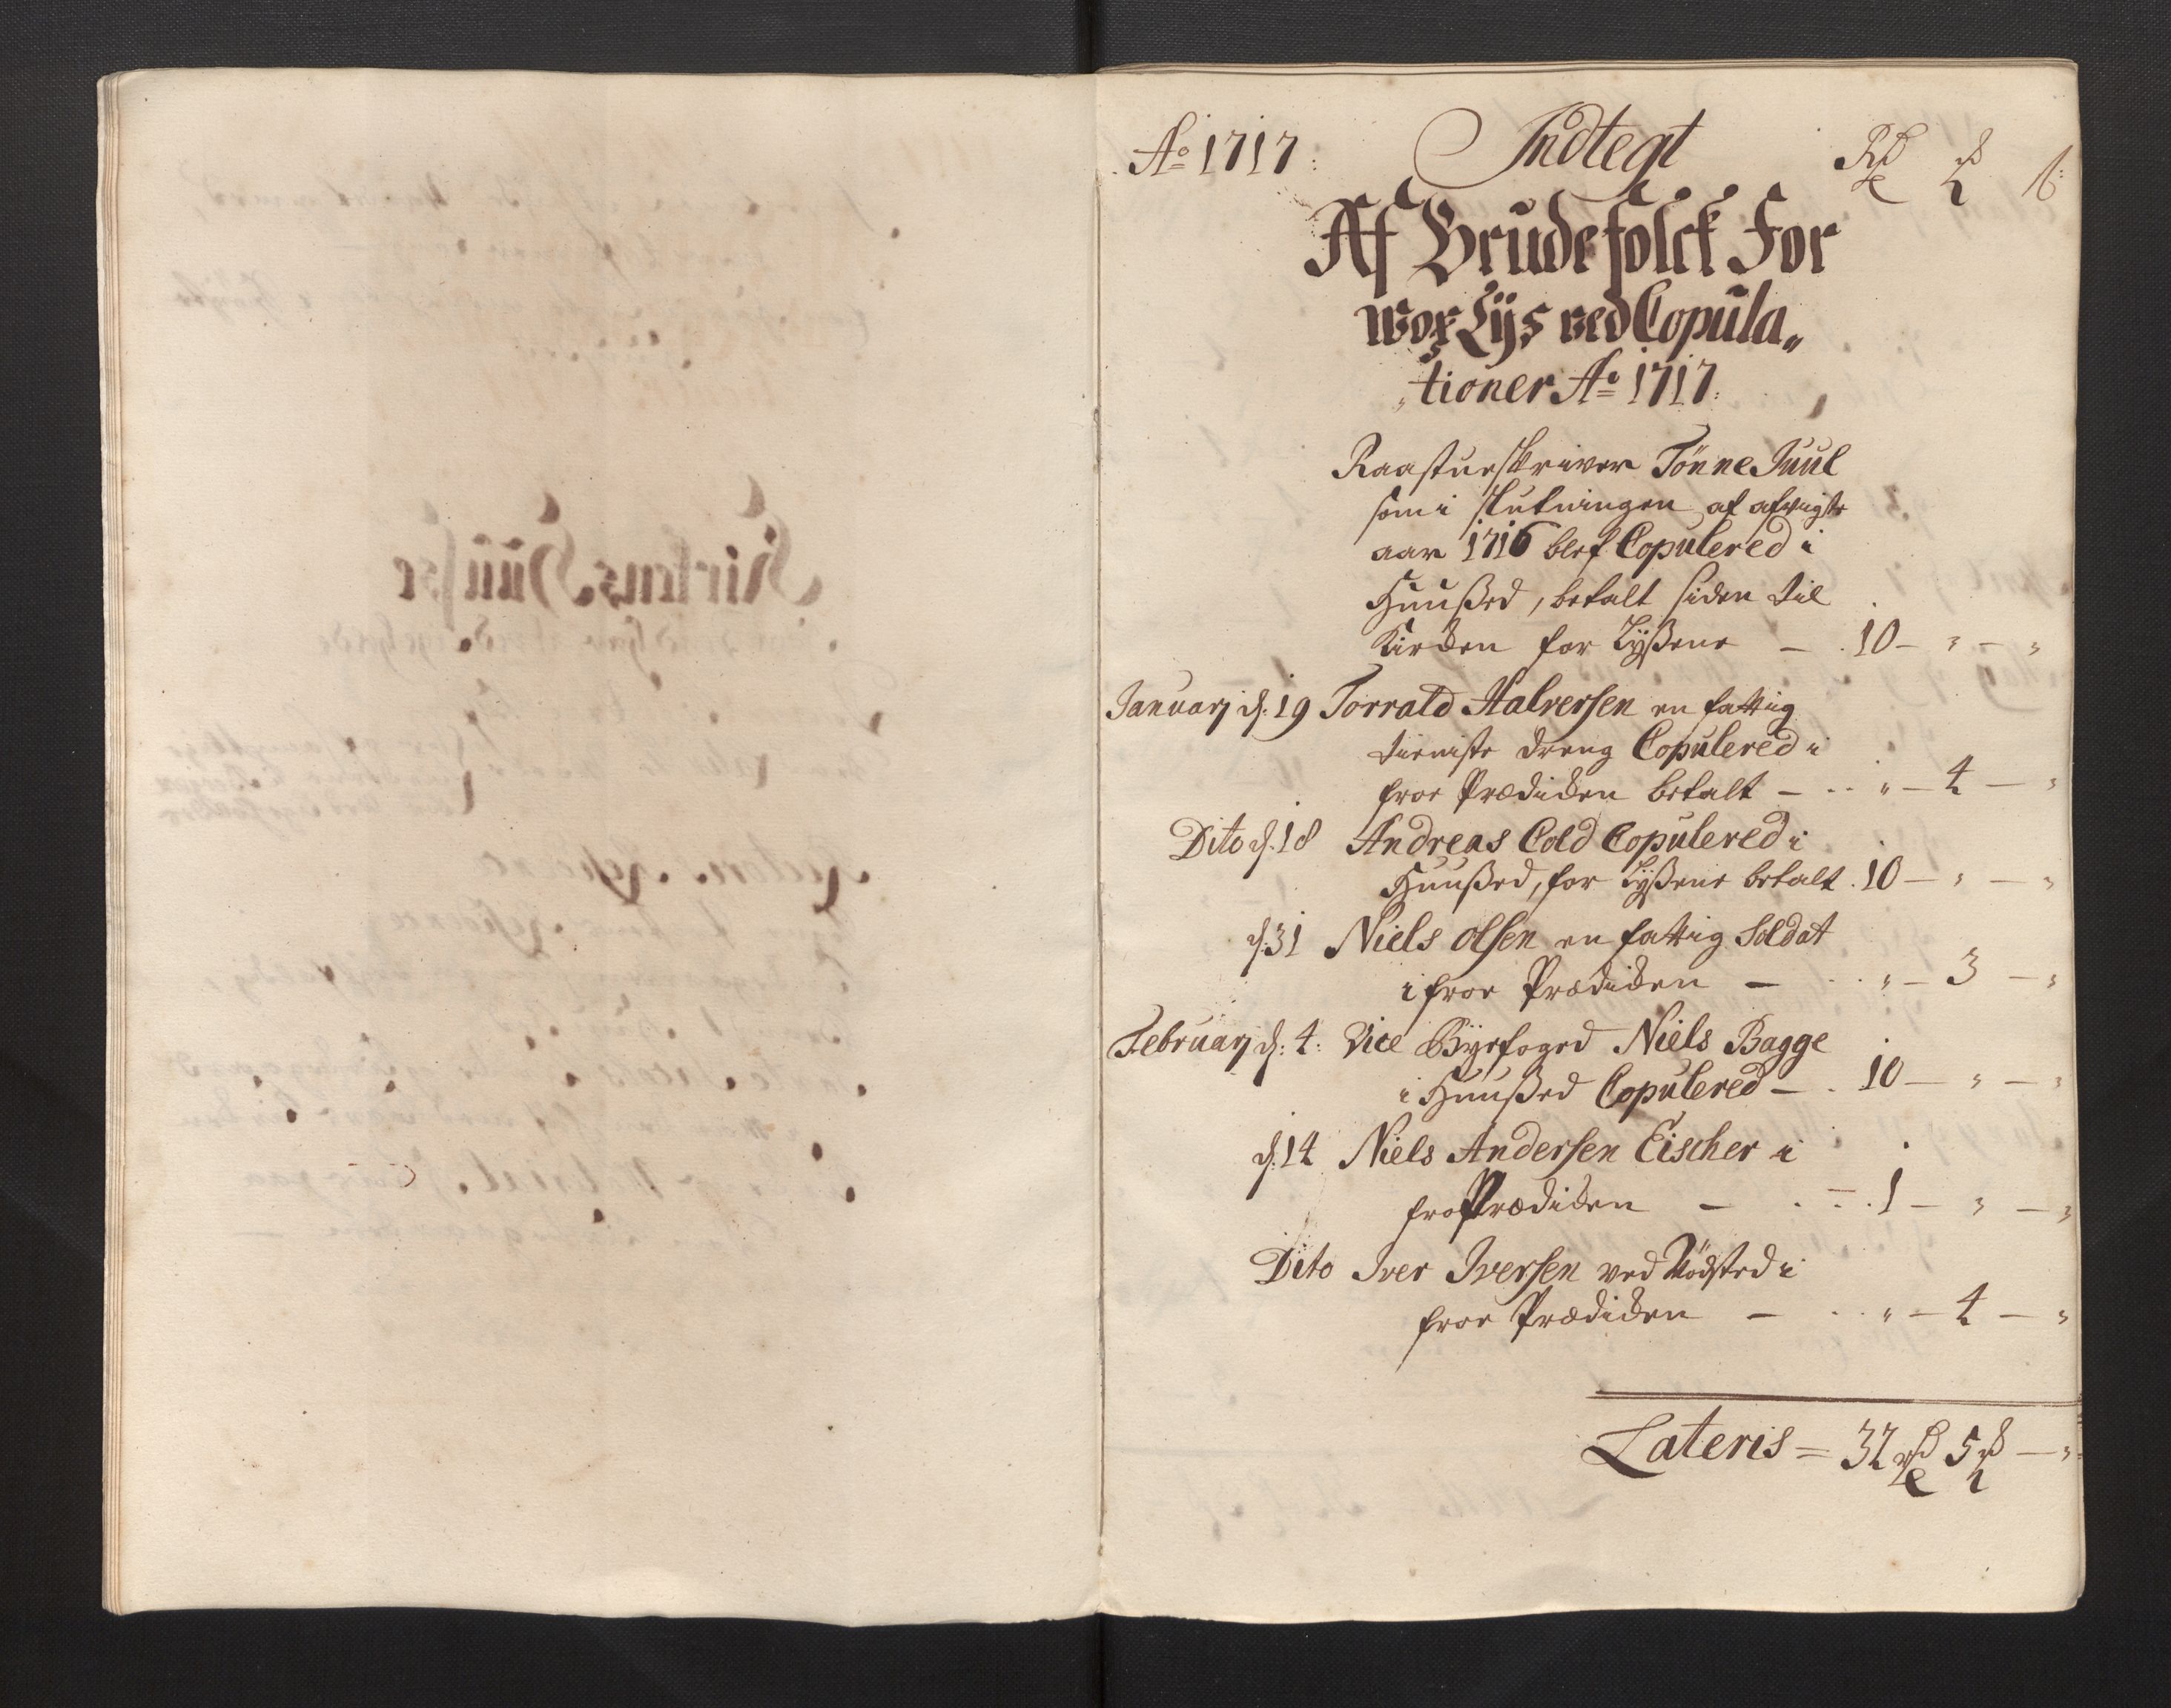 Ao 1717: Indtegt Rdr mk ß:
Af Brudefolck For
wox Lys ved Copula„
„tioner Ao 1717:
Raastueskriver Tønne Juul
som i slutningen af afvigte
aar 1716 blef Copulered i
Huußed, betalt siden til
Kircken for Lyßene — 10 — " — "
Januarj d: 19 Torrald Halversen en fattig
tieniste dreng Copulered i
froe Prædicken betalt — " — 4 — "
Dito d. 18 Andreas Cold Copulered i
Huußed, for Lyßene betalt . 10 — " — "
d: 31 Niels Olsen en fattig Soldat
i froe Prædicken — " — 3 — "
Februarj d: 4: Vice Byefoged Niels Bagge
i Huußed Copulered — 10 — " — "
d. 14 Niels Andersen Eischer i
fro Prædicken — 1 — " — "
Dito Iver Iversen ved Nødsted i
froe Prædicken — " — 4 — "
Lateris = 32 rdr 5 mk — "